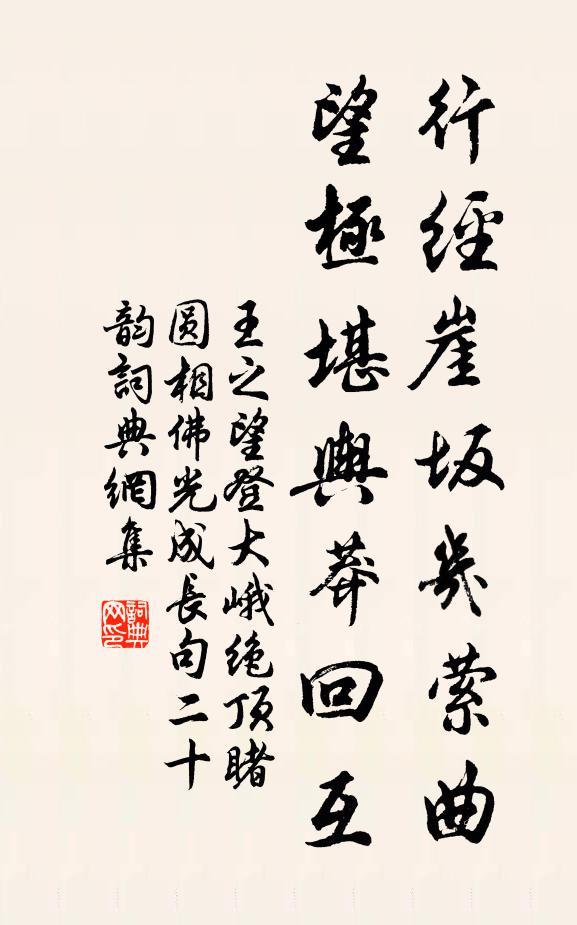 行經崖坂幾縈曲
望極堪輿莽回互
王之望登大峨绝顶睹
圆相佛光成長句二十
韵詞典網集
詞典
网印